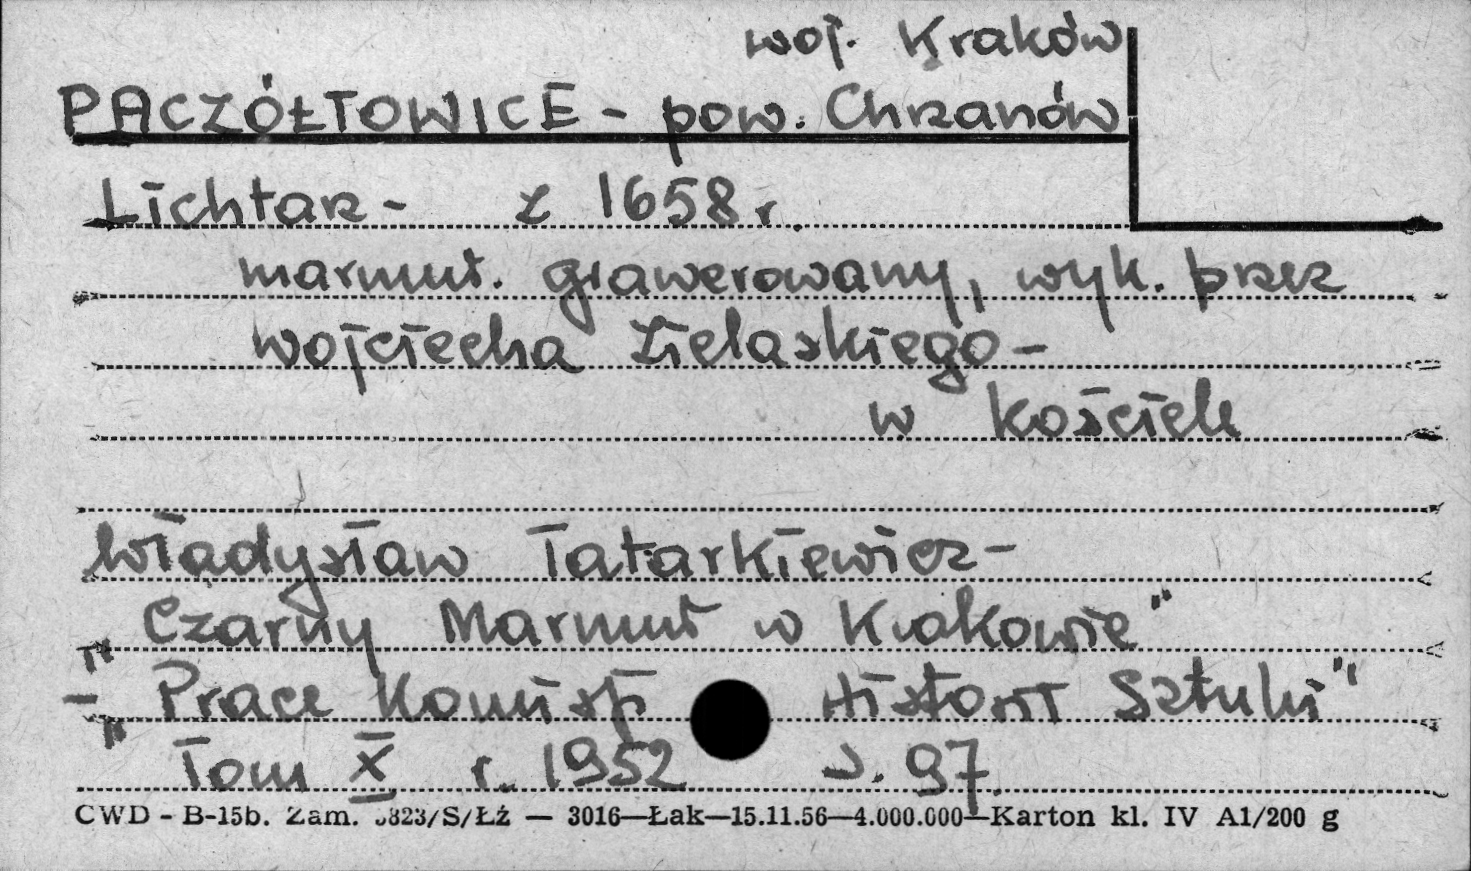 woj. Kraków
PACZÓŁTOWICE - pow. Chrzanów
Lichtarz - z 1658 r.
marmur. grawerowany, wyk. przez
Wojciecha Zielaskiego -
w kościele
Władysław Tatarkiewicz -
"Czarny Marmur w Krakowie"
- "Prace Komisji Historii Sztuki"
Tom X r. 1952 s. 97.
CWD - B-15b. Zam. 5823/S/ŁŹ — 3016—Łak—15.11.56—4.000.000—Karton kl. IV A1/200 g